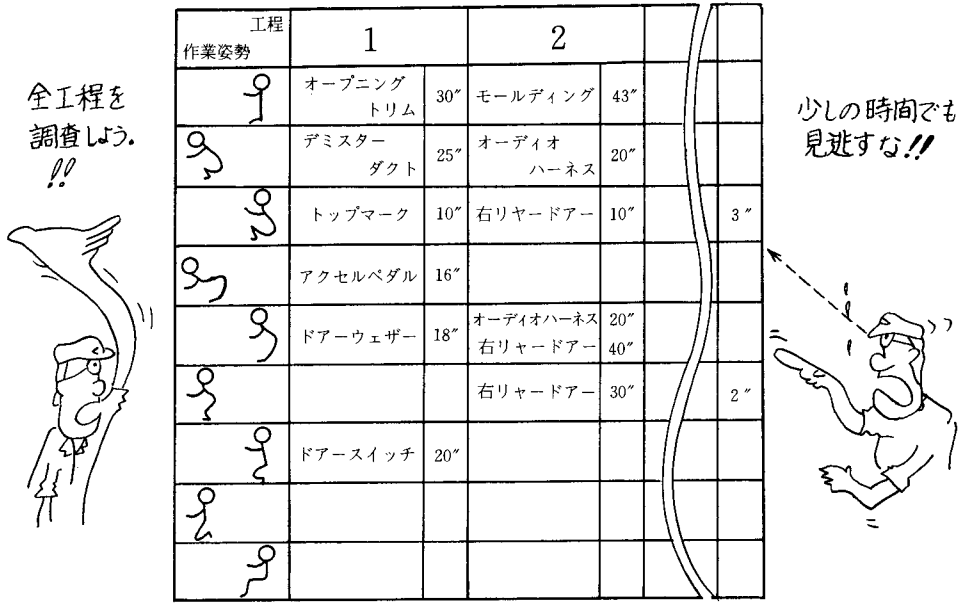 全工程を
調査しよう.
!!
工程
作業姿勢
1
2
オープニング
トリム
30″
モールディング
43″
デミスター
ダクト
25″
オーディオ
ハーネス
20″
トップマーク
10″
右リヤードアー
10″
3″
アクセルペダル
16″
ドアーウェザー
18″
オーディオハーネス
20″
右リャードアー
40″
右リャードアー
30″
2″
ドアースイッチ
20″
少しの時間でも
見逃すな!!